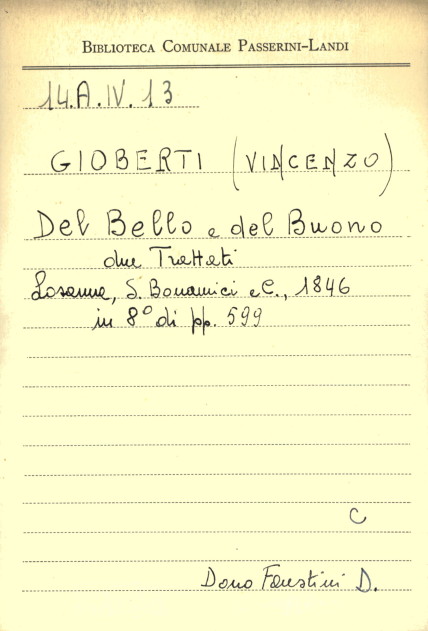 BIBLIOTECA COMUNALE PASSERINI-LANDI
14.A.IV.13
GIOBERTI (VINCENZO)
Del Bello e del Buono
due Trattati
Losanna, S. Bonamici e C., 1846
in 8° di pp. 599
C
Dono Faustini D.